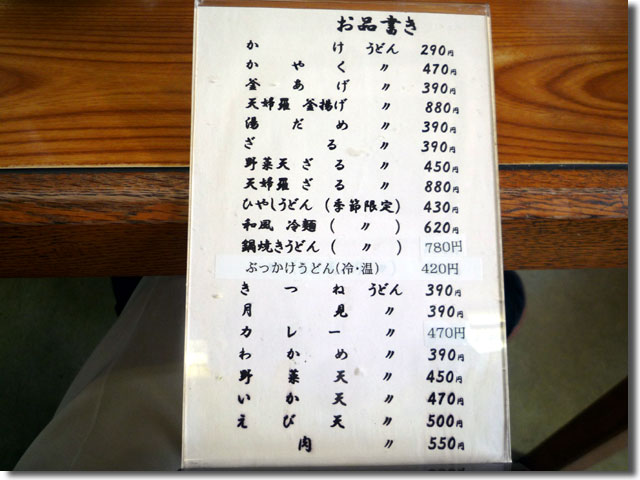 お品書き
かけうどん 290円
かやく 〃 470円
釜あげ 〃 390円
天婦羅 釜揚げ 〃 880円
湯だめ 〃 390円
ざる 〃 390円
野菜天ざる 〃 450円
天婦羅ざる 〃 880円
ひやしうどん(季節限定) 430円
和風 冷麺( 〃 ) 620円
鍋焼きうどん( 〃 ) 780円
ぶっかけうどん(冷・温) 420円
きつねうどん 390円
月見 〃 390円
カレー 〃 470円
わかめ 〃 390円
野菜天 〃 450円
いか天 〃 470円
えび天 〃 500円
肉 〃 550円